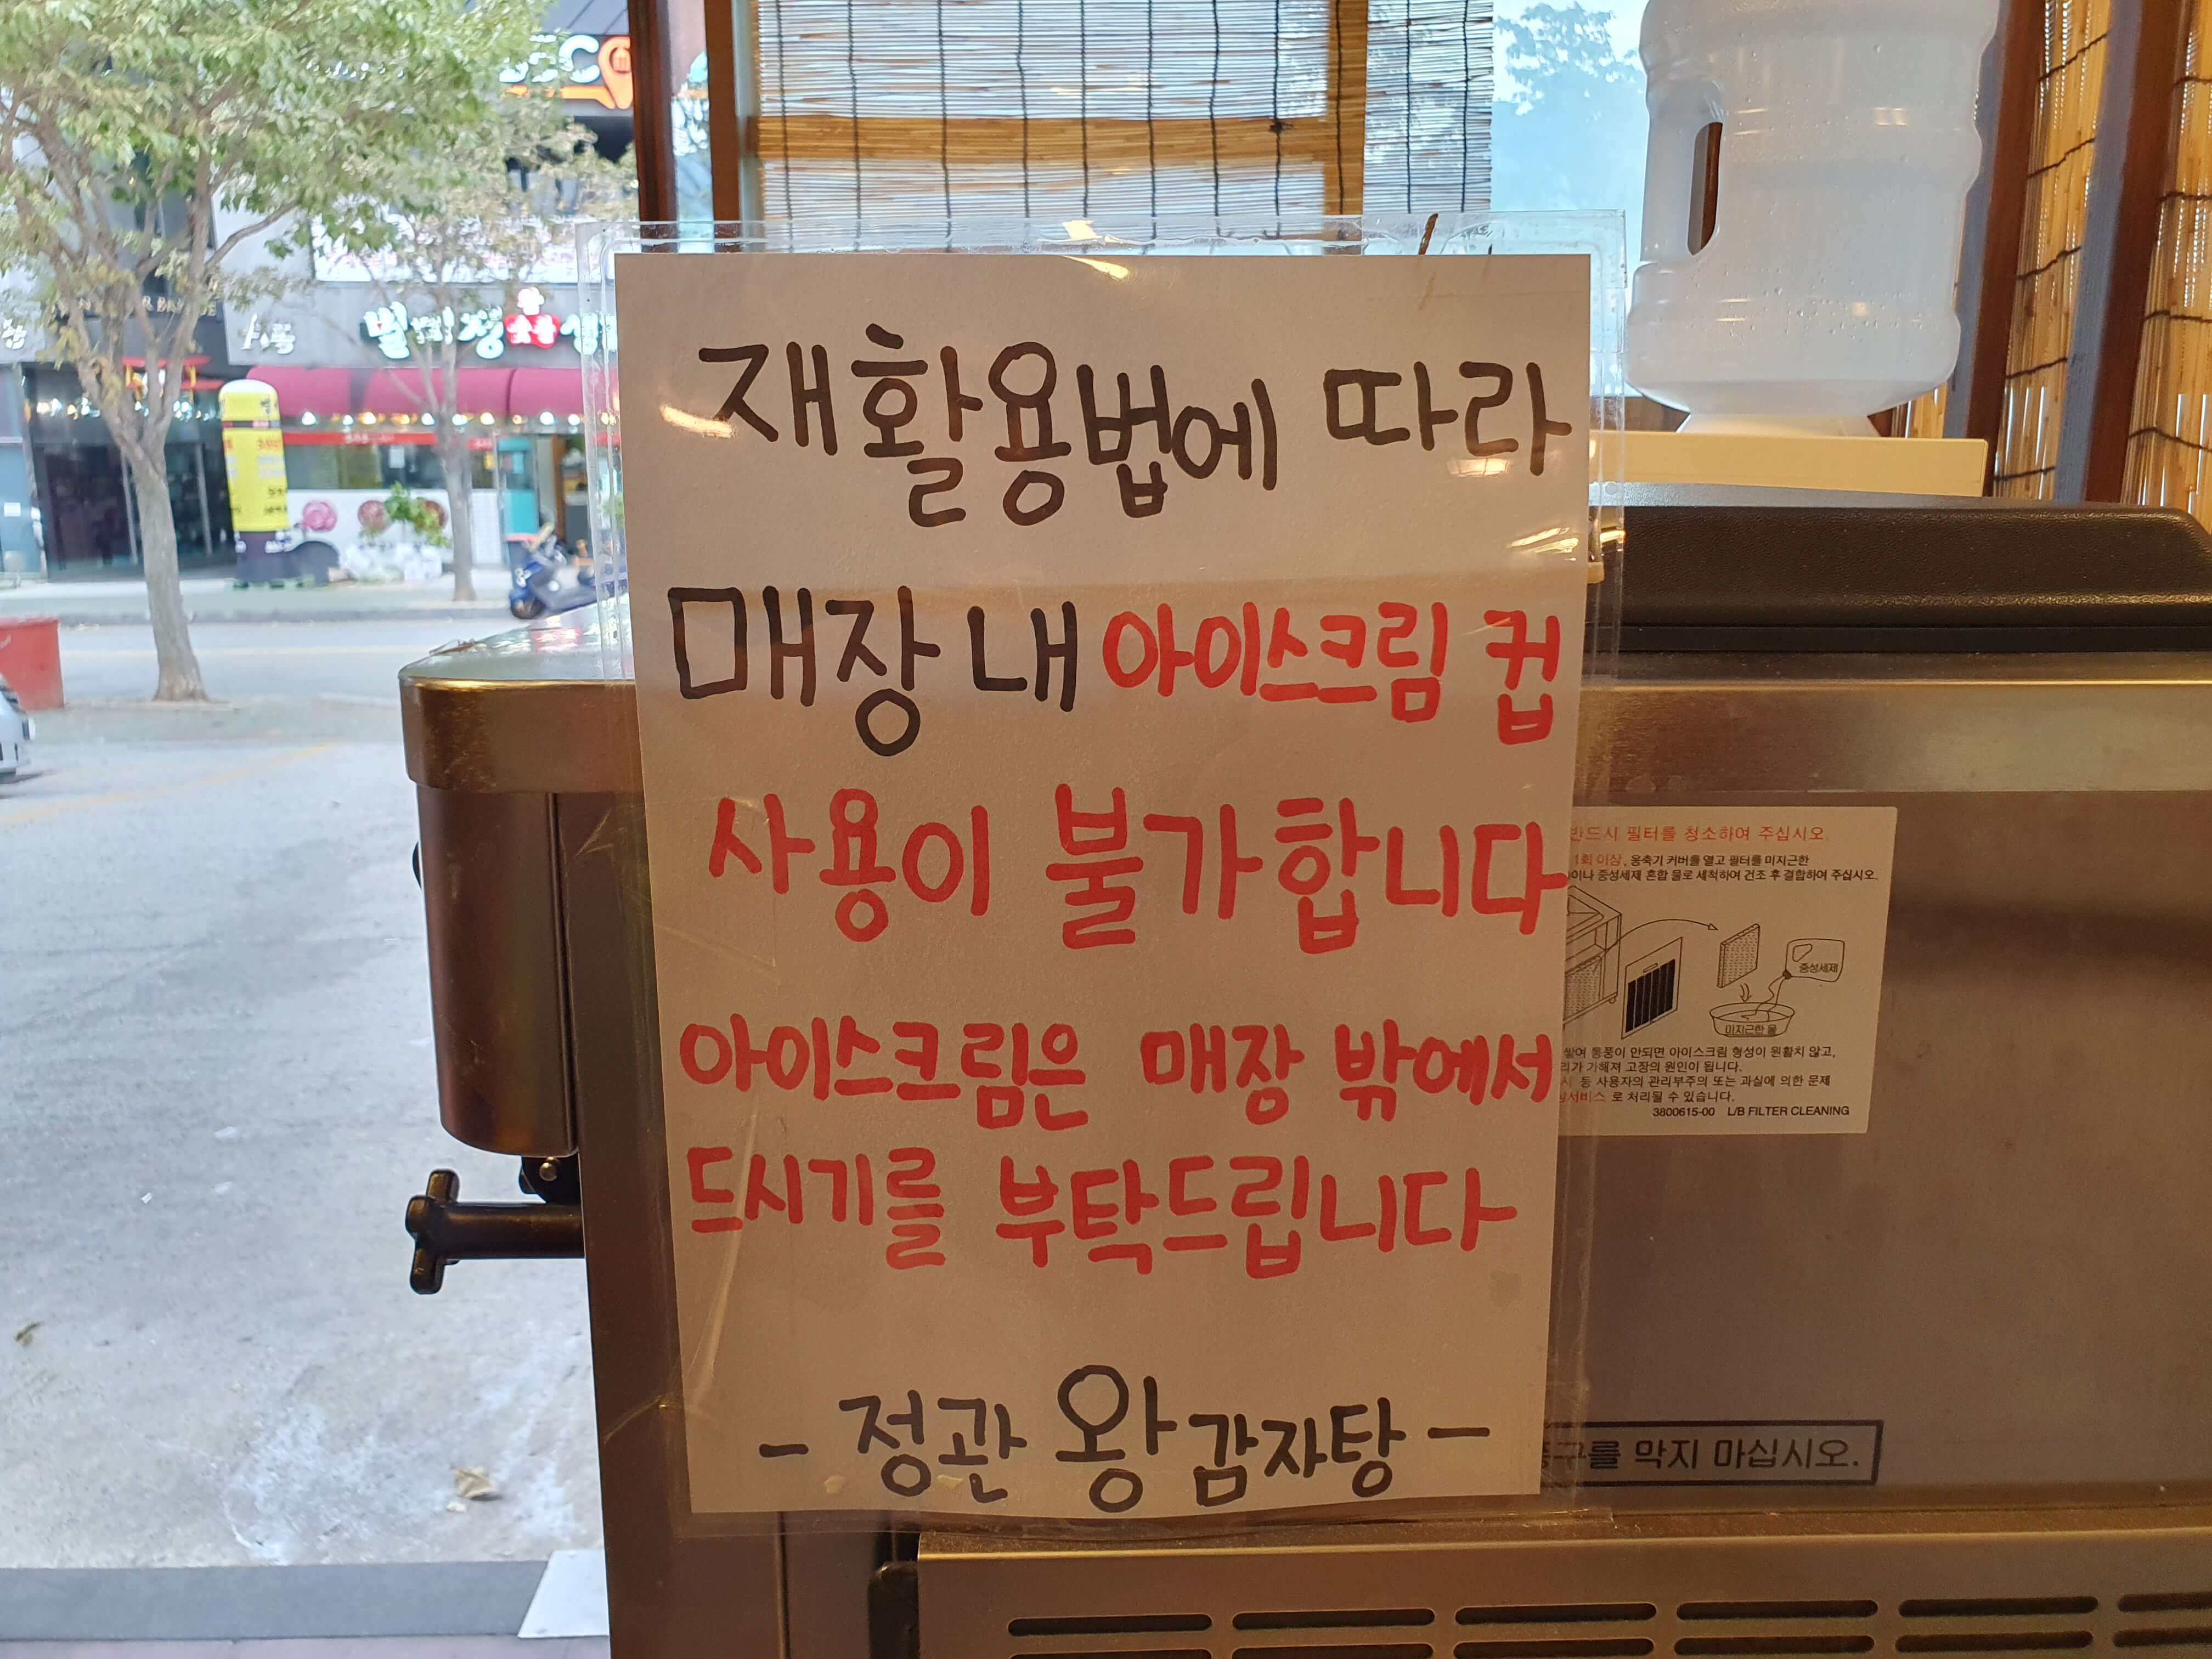 재활용법에 따라
매장 내 아이스크림 컵
사용이 불가합니다
아이스크림은 매장 밖에서
드시기를 부탁드립니다
- 정관 왕감자탕 -
반드시 필터를 청소하여 주십시오.
1회 이상, 응축기 커버를 열고 필터를 미지근한
이나 중성세제 혼합 물로 세척하여 건조 후 결합하여 주십시오.
중성세제
미지근한 물
쌓여 통풍이 안되면 아이스크림 형성이 원활치 않고,
가해져 고장의 원인이 됩니다.
등 사용자의 관리부주의 또는 과실에 의한 문제
서비스 로 처리될 수 있습니다.
3800615-00 L/B FILTER CLEANING
구를 막지 마십시오.